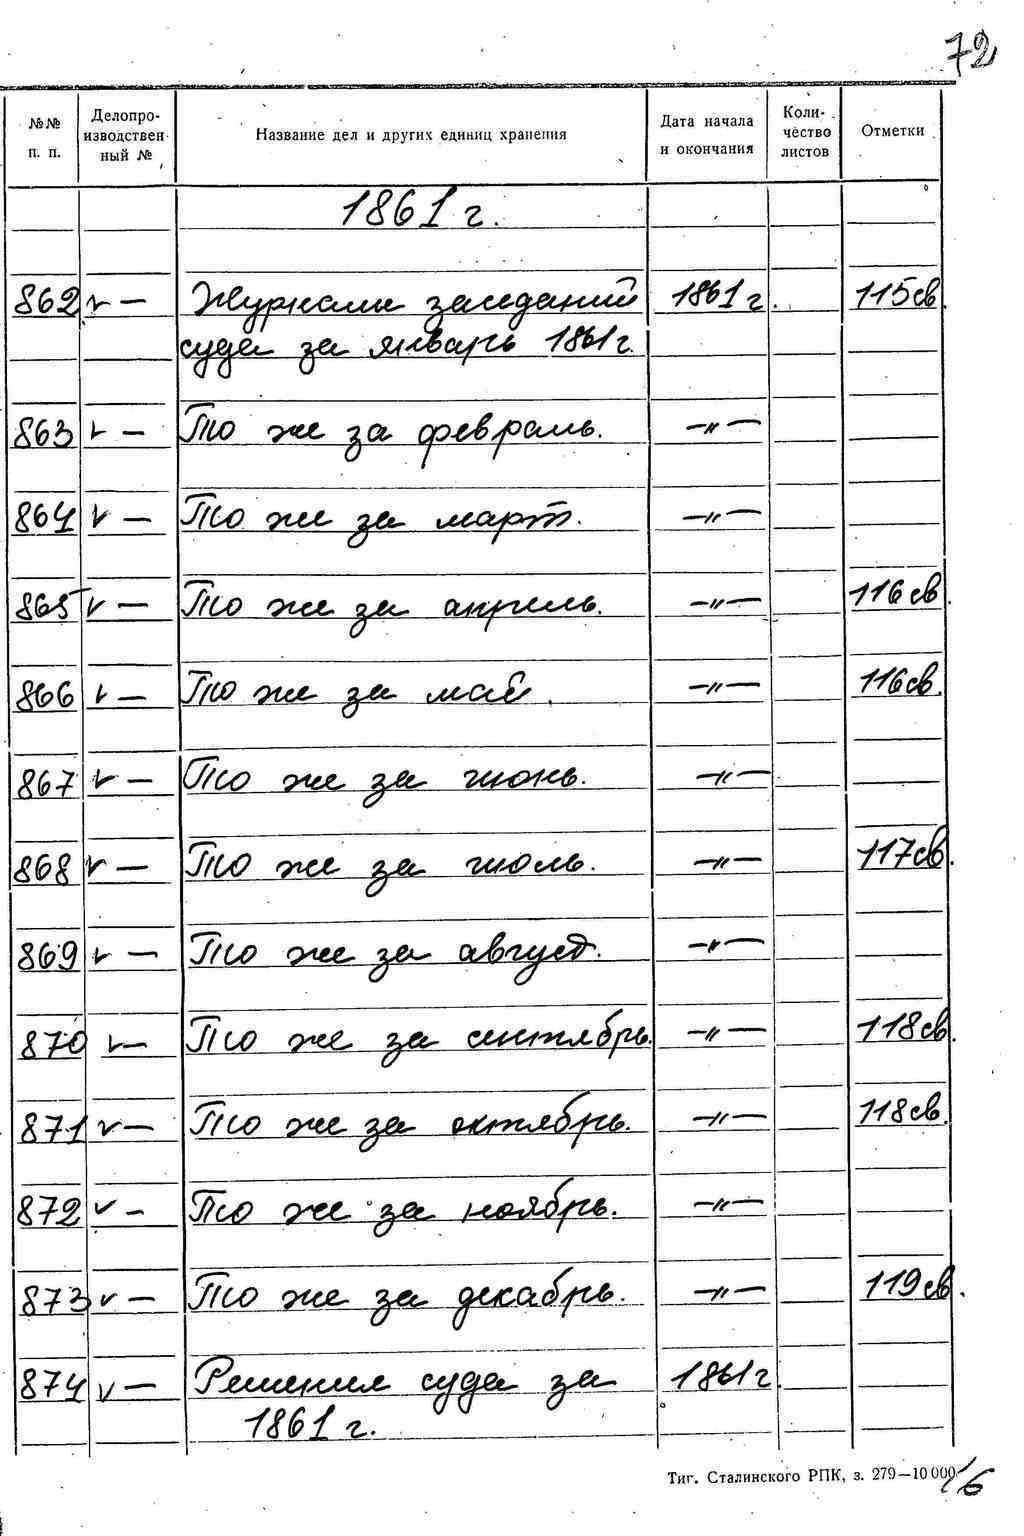 72
№№ п. п. Делопроизводственный № Название дел и других единиц хранения Дата начала и окончания Количество листов Отметки
1861 г.
862 v — Журналы заседаний 1861 г. 115 св.
суда за январь 1861 г.
863 v — То же за февраль. —"—
864 v — То же за март. —"—
865 v — То же за апрель. —"— 116 св.
866 v — То же за май. —"— 116 св.
867 v — То же за июнь. —"—
868 v — То же за июль. —"— 117 св.
869 v — То же за август. —"—
870 v — То же за сентябрь. —"— 118 св.
871 v — То же за октябрь. —"— 118 св.
872 v — То же за ноябрь. —"—
873 v — То же за декабрь. —"— 119 св.
874 v — Решения суда за 1861 г.
1861 г.
Тиг. Сталинского РПК, з. 279—10 000